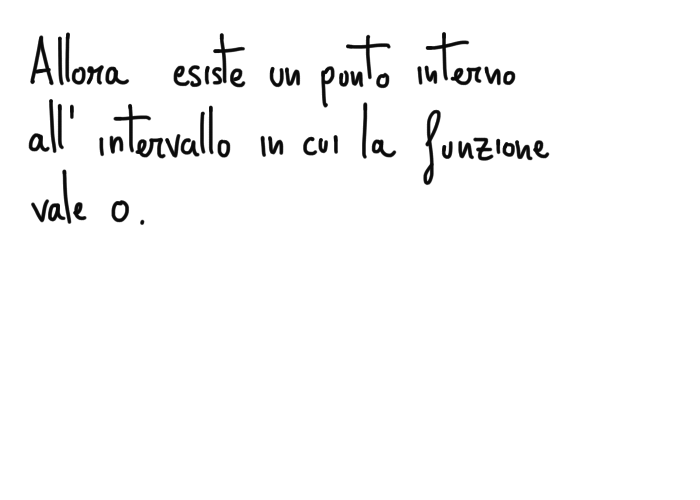 Allora esiste un punto interno
all' intervallo in cui la funzione
vale 0.